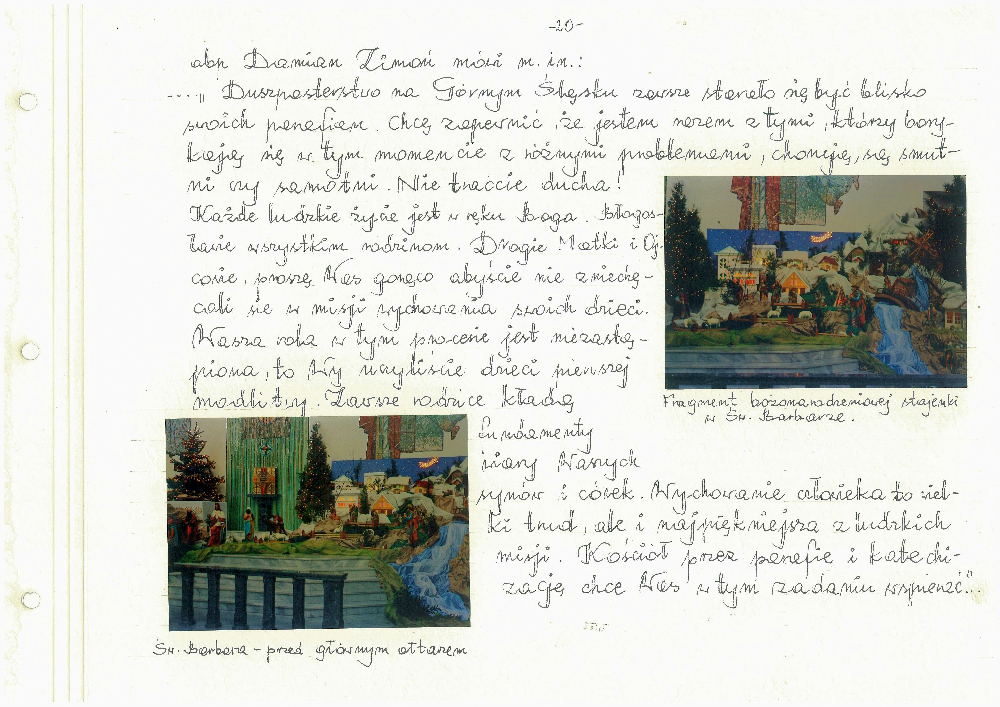 -20-
abp Damian Zimoń mówi m. in.:
...„ Duszpasterstwo na Górnym Śląsku zawsze starało się być blisko
swoich parafian. Chcę zapewnić, że jestem razem z tymi, którzy bory-
kają się w tym momencie z różnymi problemami, chorują, są smut-
ni czy samotni. Nie traćcie ducha!
Każde ludzkie życie jest w ręku Boga. Błogos-
ławię wszystkim rodzinom. Drogie Matki i Oj-
cowie, proszę Was gorąco abyście nie zniechę-
cali się w misji wychowania swoich dzieci.
Wasza rola w tym procesie jest niezastą-
piona, to Wy uczyliście dzieci pierwszej
modlitwy. Zawsze rodzice kładą
fundamenty
wiary Waszych
synów i córek. Wychowanie człowieka to wiel-
ki trud, ale i najpiękniejsza z ludzkich
misji. Kościół przez parafię i katechi-
zację chce Was w tym zadaniu wspierać"...
Fragment bożonarodzeniowej stajenki
w Św. Barbarze.
Św. Barbara - przed głównym ołtarzem